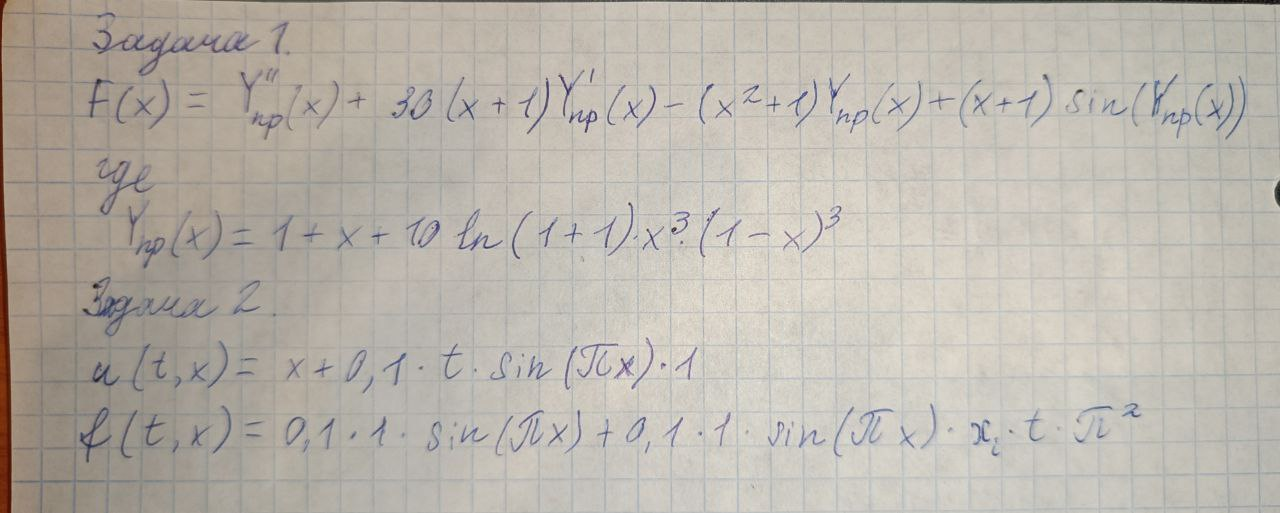 Задача 1.
F(x) = Y''пр(x) + 30(x+1)Y'пр(x) - (x²+1)Yпр(x) + (x+1) sin(Yпр(x))
где
Yпр(x) = 1 + x + 10 ln(1+1)·x³·(1-x)³
Задача 2.
u(t,x) = x + 0,1 · t · sin(πx) · 1
f(t,x) = 0,1 · 1 · sin(πx) + 0,1 · 1 · sin(πx) · æᵢ · t · π²